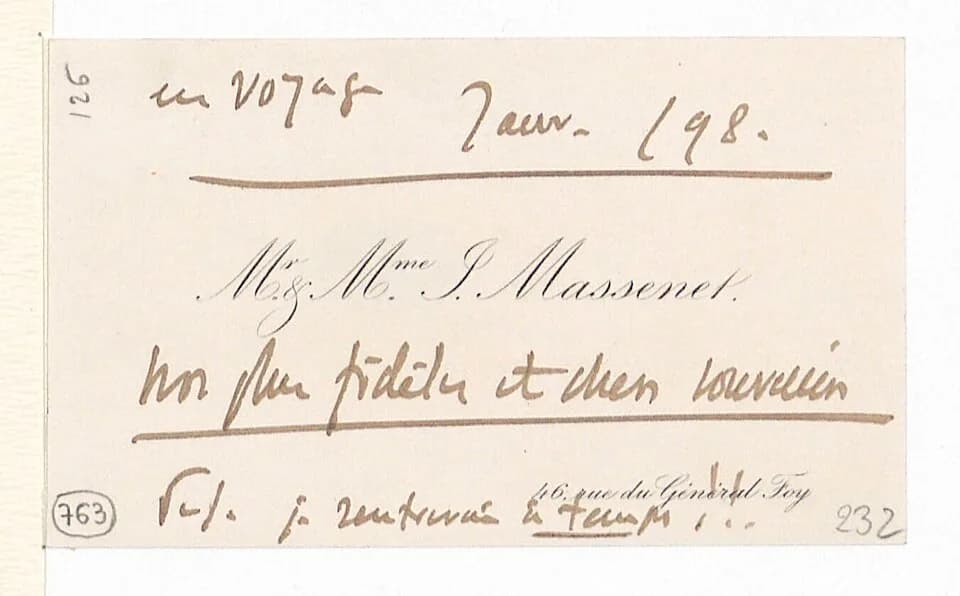 126
en voyage Janv. 98.
Mr. & Mme. J. Massenet.
nos plus fidèles et chers souvenirs
46, rue du Général Foy
P.S. je rentrerai à temps !...
763
232